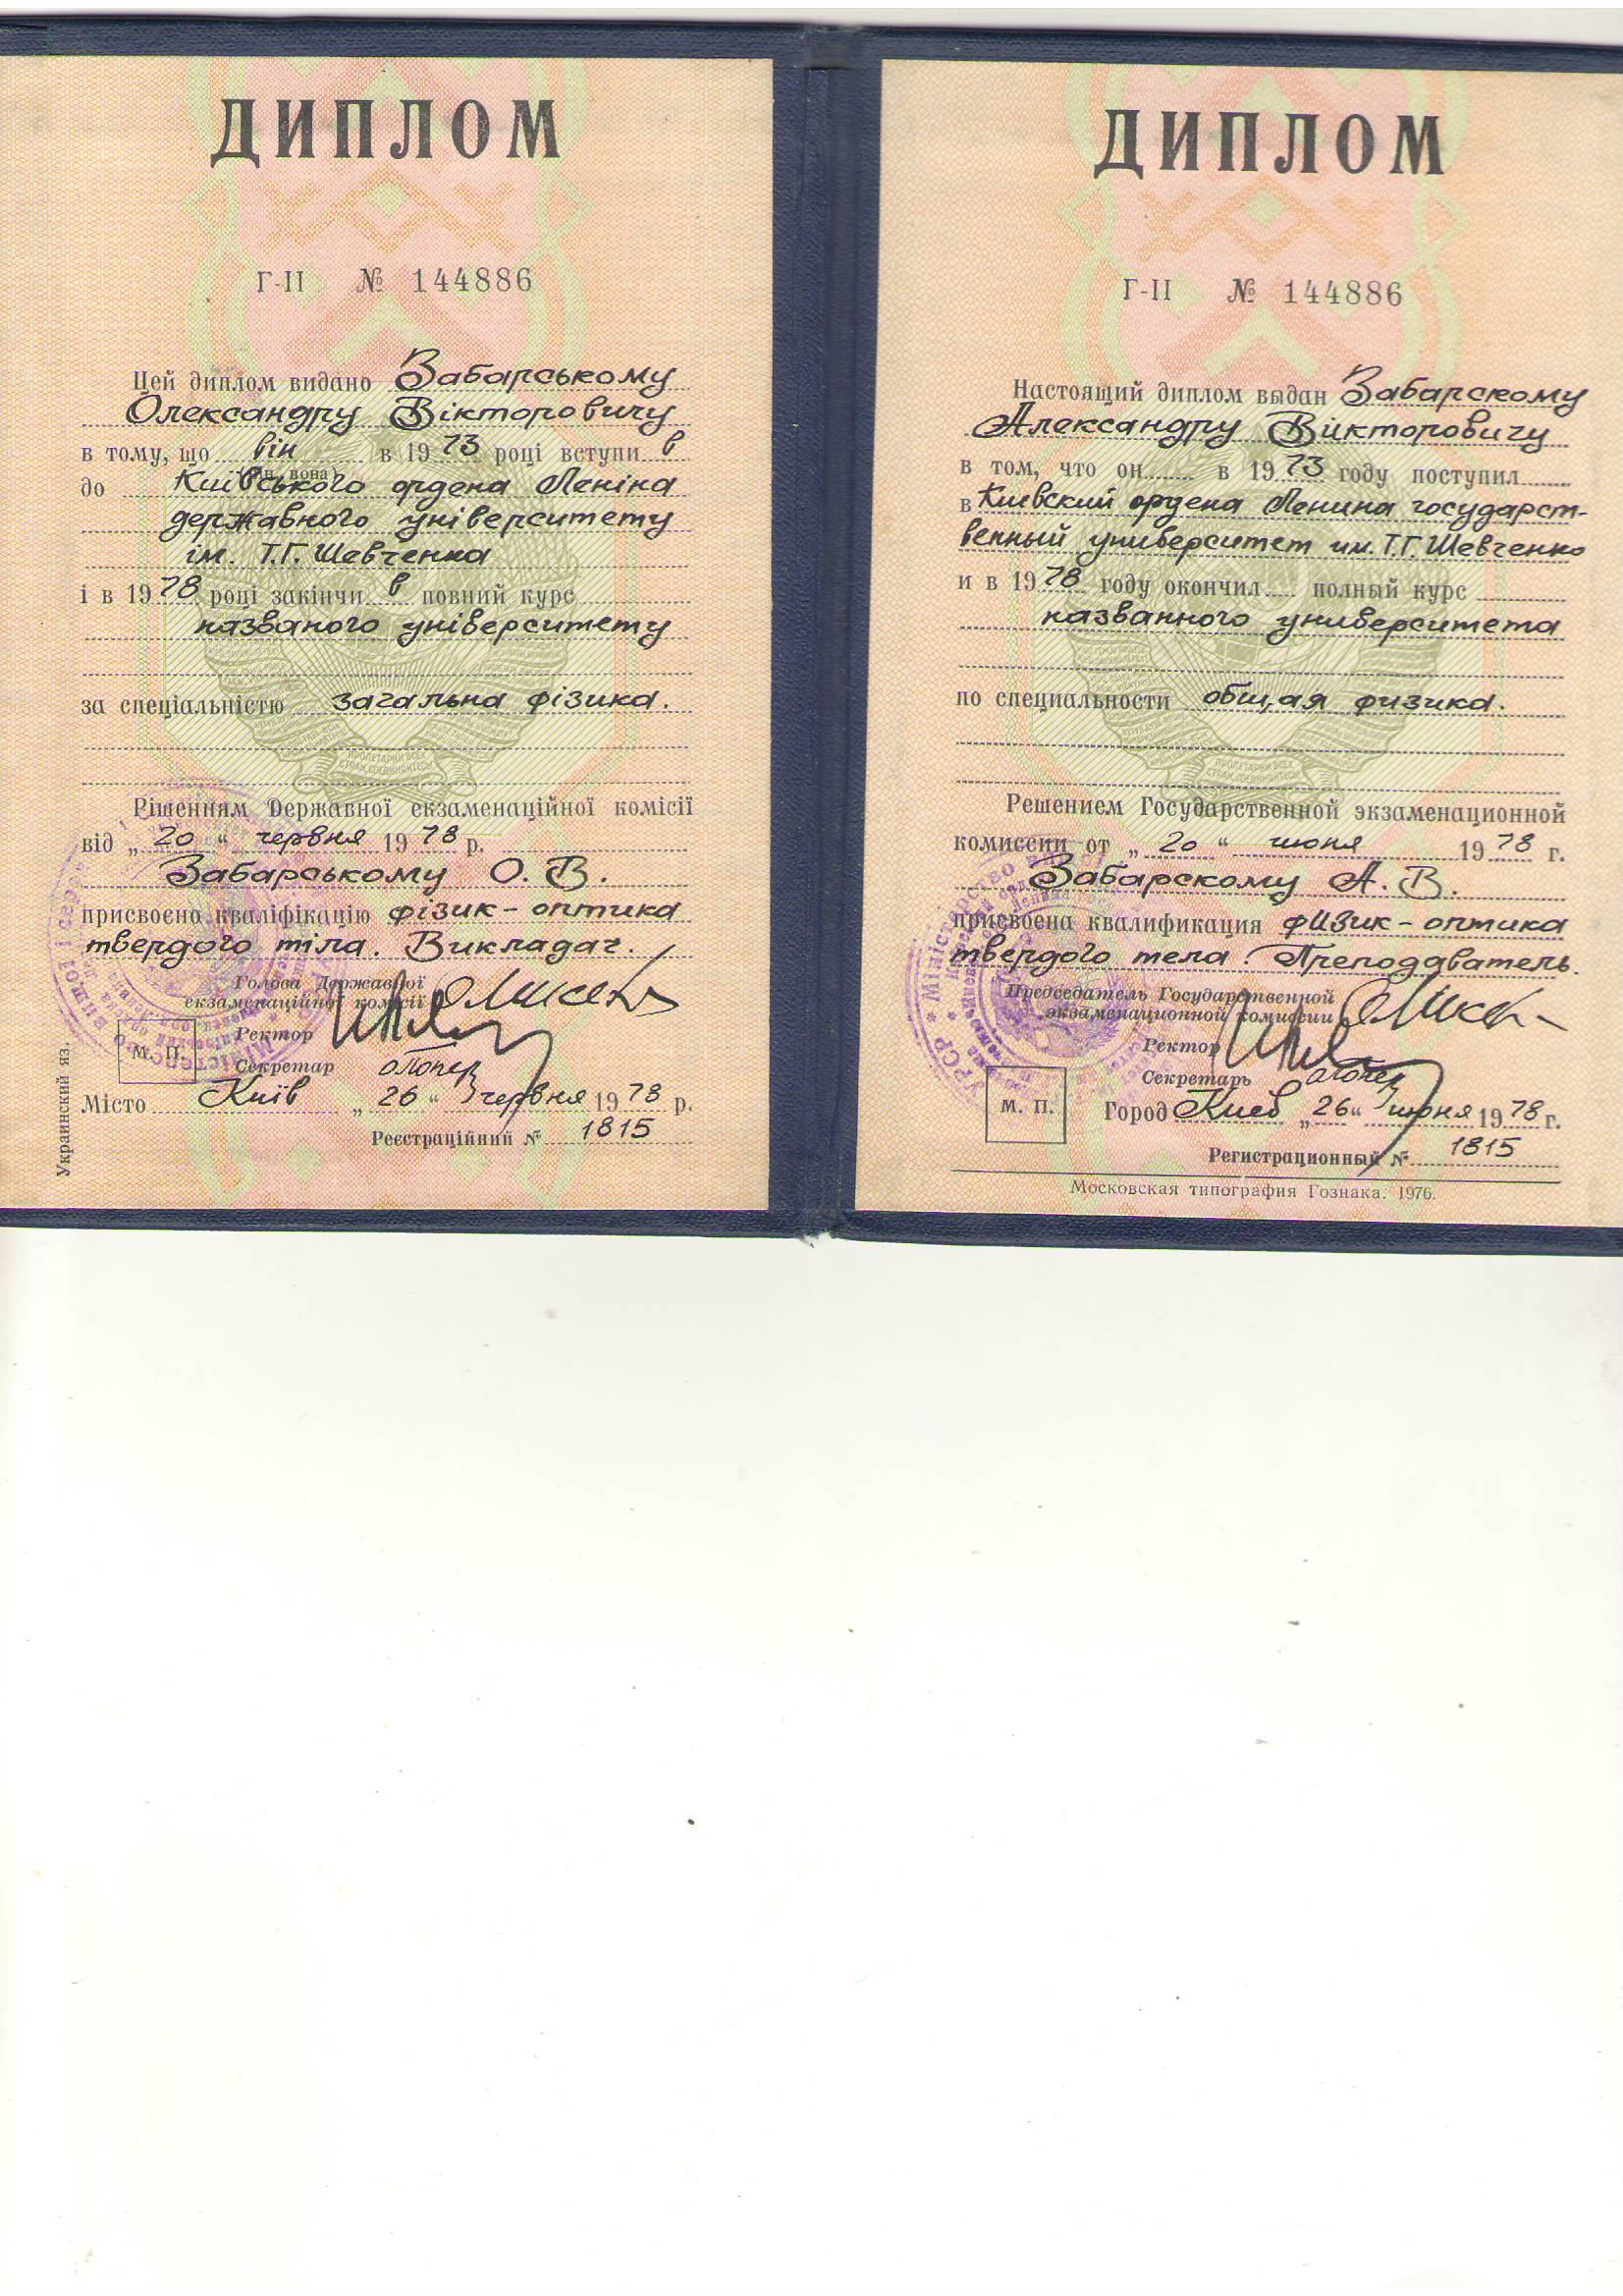 ДИПЛОМ
Г-II № 144886
Цей диплом видано Забарському
Олександру Вікторовичу
в тому, що він в 1973 році вступив
(він, вона)
до Київського ордена Леніна
державного університету
ім. Т.Г. Шевченка
і в 1978 році закінчив повний курс
названого університету
за спеціальністю загальна фізика.
ПРОЛЕТАРИИ ВСЕХ
СТРАН, СОЕДИНЯЙТЕСЬ!
Рішенням Державної екзаменаційної комісії
від „20“ червня 1978 р.
Забарському О. В.
присвоєно кваліфікацію фізик-оптика
твердого тіла. Викладач.
Голова Державної
екзаменаційної комісії
Ректор
М. П.
Секретар
Місто Київ „26“ червня 1978 р.
Реєстраційний № 1815
Украинский яз.
ДИПЛОМ
Г-II № 144886
Настоящий диплом выдан Забарскому
Александру Викторовичу
в том, что он в 1973 году поступил
в Киевский ордена Ленина государст-
венный университет им. Т.Г. Шевченко
и в 1978 году окончил полный курс
названного университета
по специальности общая физика.
ПРОЛЕТАРИИ ВСЕХ
СТРАН, СОЕДИНЯЙТЕСЬ!
Решением Государственной экзаменационной
комиссии от „20“ июня 1978 г.
Забарскому А. В.
присвоена квалификация физик-оптика
твердого тела. Преподаватель.
Председатель Государственной
экзаменационной комиссии
Ректор
Секретарь
М. П.
Город Киев „26“ июня 1978 г.
Регистрационный № 1815
Московская типография Гознака. 1976.
УРСР * Міністерство